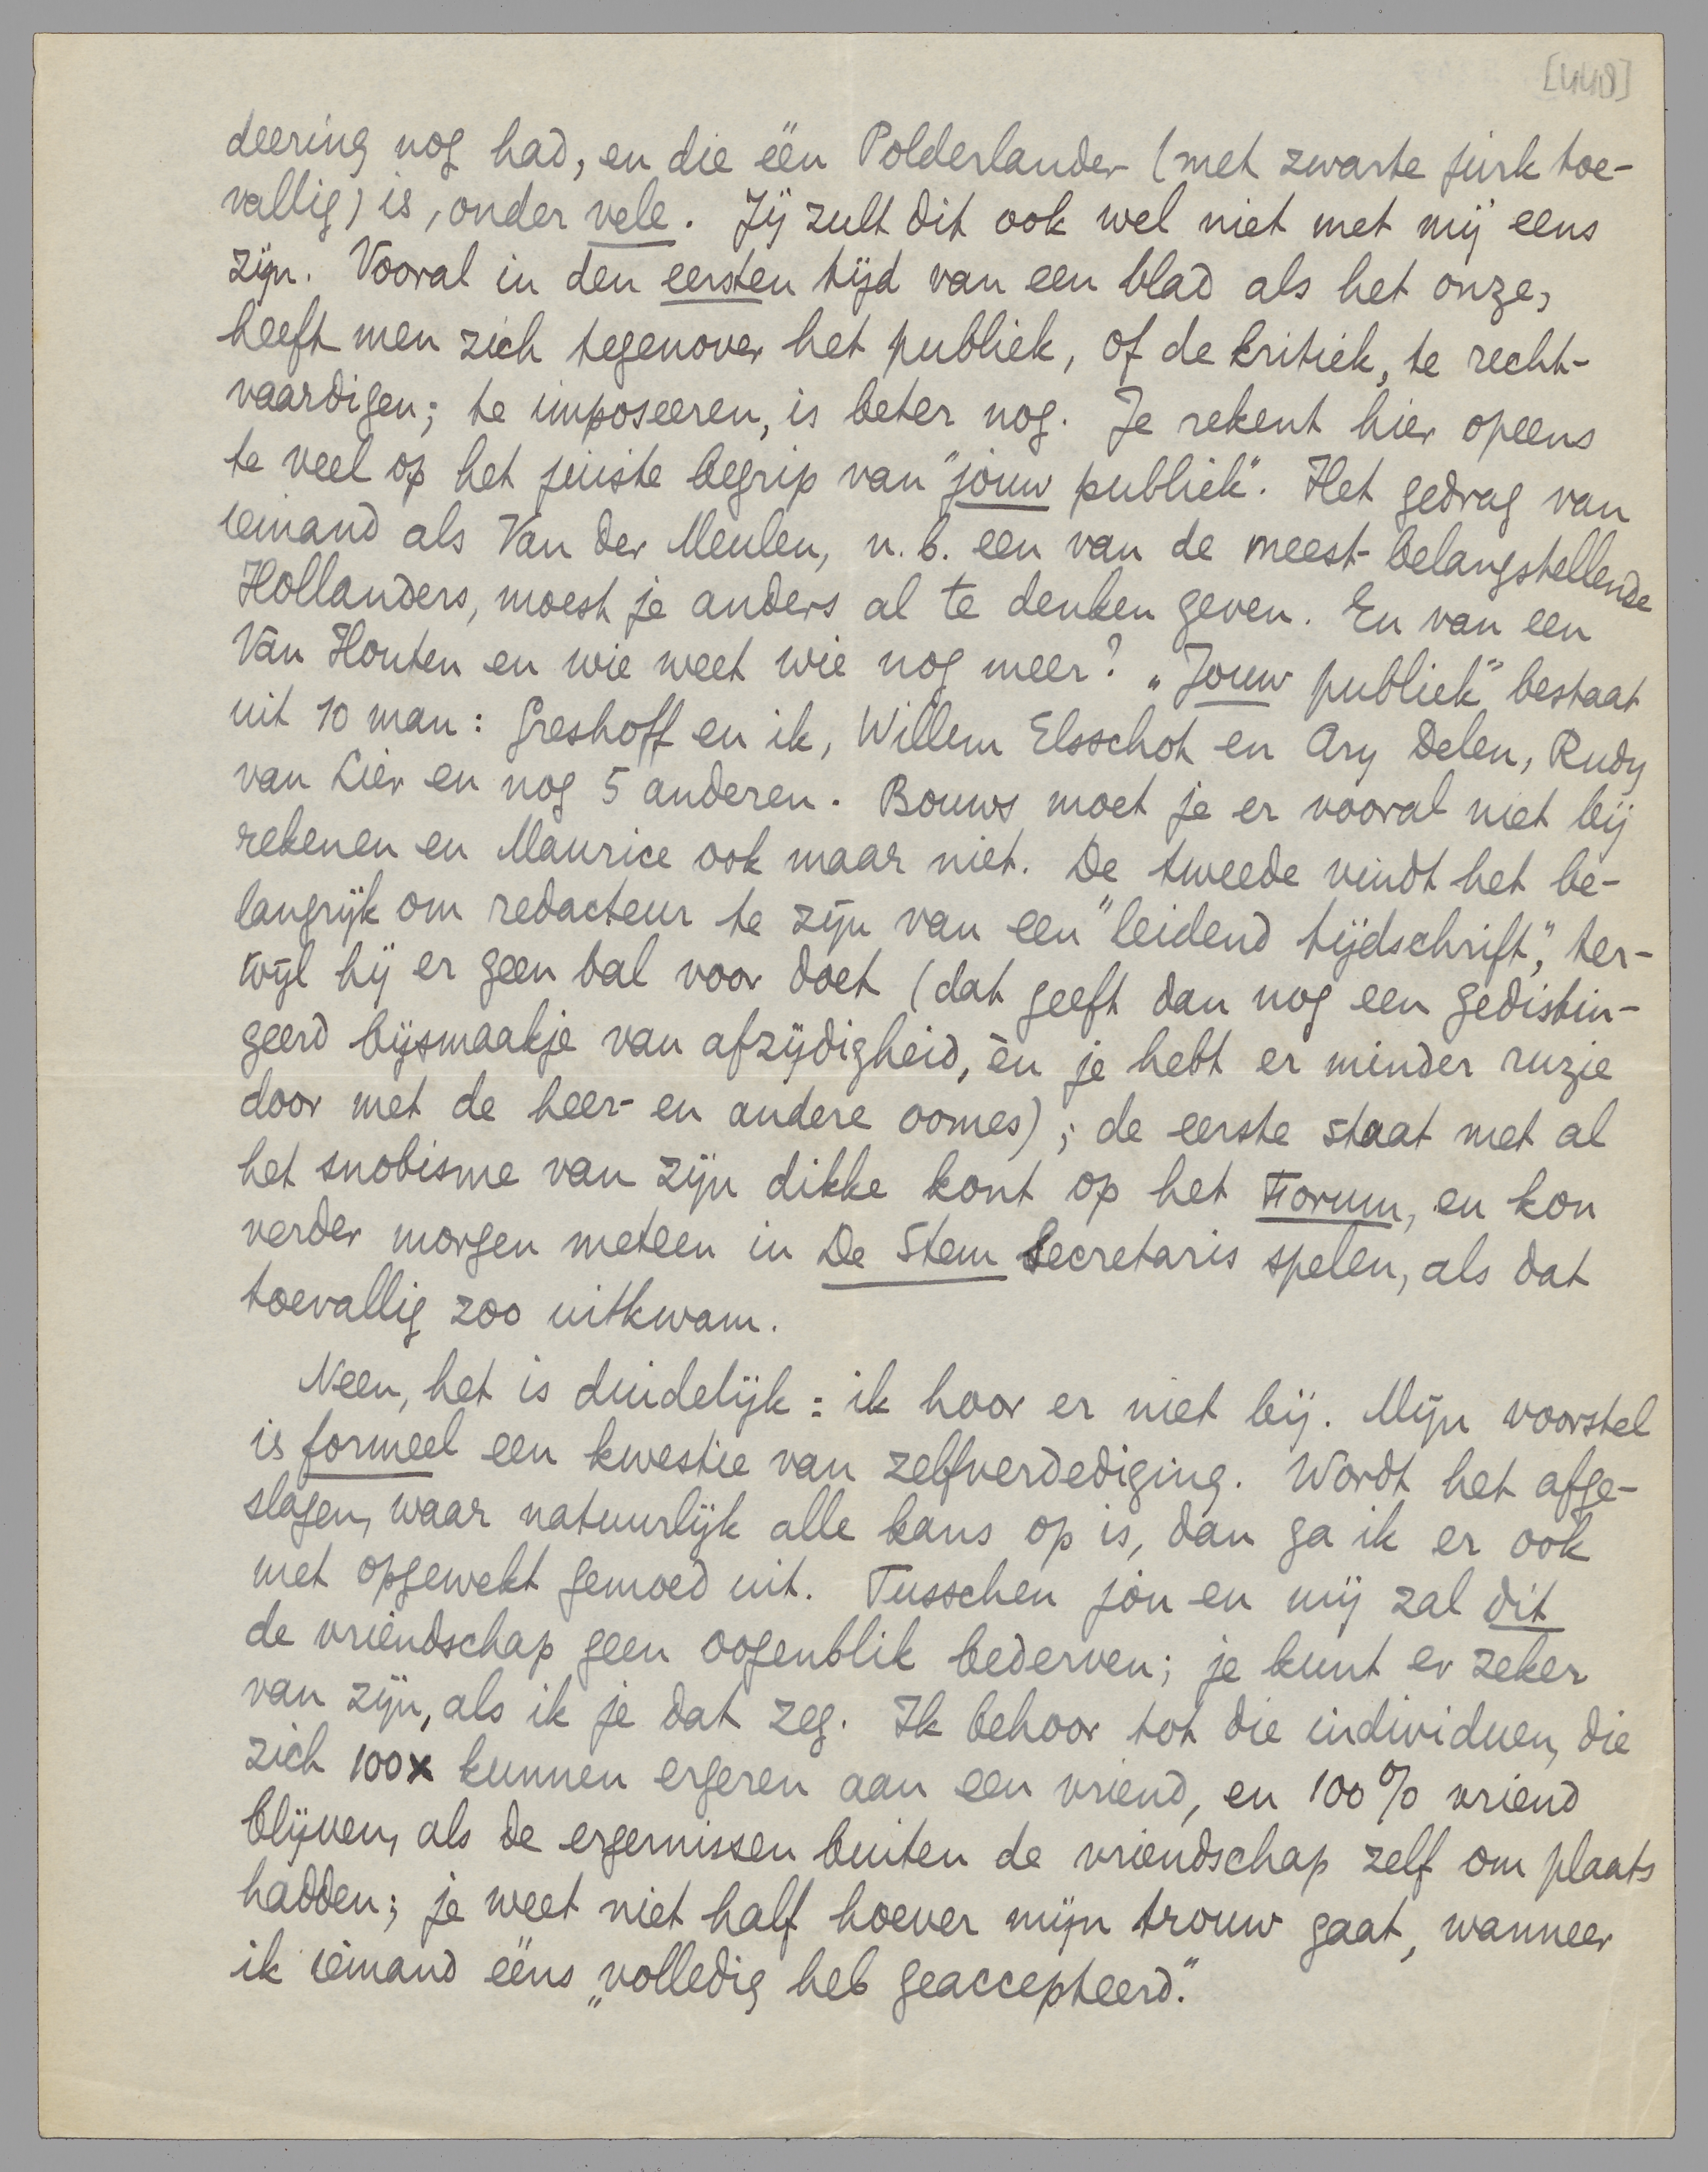 [448]
deering nog had, en die één Polderlander (met zwarte jurk toe-
vallig) is, onder vele. Jij zult dit ook wel niet met mij eens
zijn. Vooral in den eersten tijd van een blad als het onze,
heeft men zich tegenover het publiek, of de kritiek, te recht-
vaardigen; te imposeeren, is beter nog. Je rekent hier opeens
te veel op het juiste begrip van "jouw publiek". Het gedrag van
iemand als Van der Meulen, n.b. een van de meest-belangstellende
Hollanders, moest je anders al te denken geven. En van een
Van Houten en wie weet wie nog meer? „Jouw publiek" bestaat
uit 10 man: Greshoff en ik, Willem Elsschot en Ary Delen, Rudy
van Lier en nog 5 anderen. Bouws moet je er vooral niet bij
rekenen en Maurice ook maar niet. De tweede vindt het be-
langrijk om redacteur te zijn van een "leidend tijdschrift", ter-
wijl hij er geen bal voor doet (dat geeft dan nog een gedistin-
geerd bijsmaakje van afzijdigheid, èn je hebt er minder ruzie
door met de heer- en andere oomes); de eerste staat met al
het snobisme van zijn dikke kont op het Forum, en kon
verder morgen meteen in De Stem secretaris spelen, als dat
toevallig zoo uitkwam.
Neen, het is duidelijk: ik hoor er niet bij. Mijn voorstel
is formeel een kwestie van zelfverdediging. Wordt het afge-
slagen, waar natuurlijk alle kans op is, dan ga ik er ook
met opgewekt gemoed uit. Tusschen jou en mij zal dit
de vriendschap geen oogenblik bederven; je kunt er zeker
van zijn, als ik je dat zeg. Ik behoor tot die individuen, die
zich 100x kunnen ergeren aan een vriend, en 100% vriend
blijven, als de ergernissen buiten de vriendschap zelf om plaats
hadden; je weet niet half hoever mijn trouw gaat, wanneer
ik iemand ééns „volledig heb geaccepteerd".